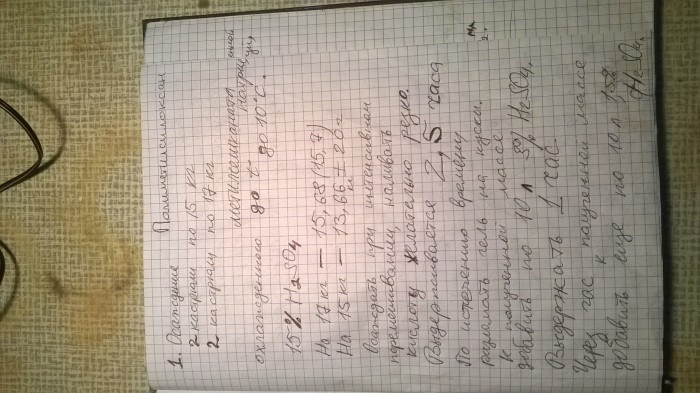 Полиметилсилоксан
1. Осаждение
2 кастрюли по 15 кг
2 кастрюли по 17 кг
метилсиликоната натрия
охлажденного до t° до 10°С.
15% H2SO4
На 17кг — 15,68 (15,7)
На 15кг — 13,66 ± 20г
Осаждать при интенсивном
перемешивании, наливать
кислоту желательно резко.
Выдерживается 2,5 часа
По истечению времени
разломать гель на куски.
К полученной массе
добавить по 10л 3% H2SO4.
Выдержать 1 час
Через час к полученной массе
добавить еще по 10л H2SO4